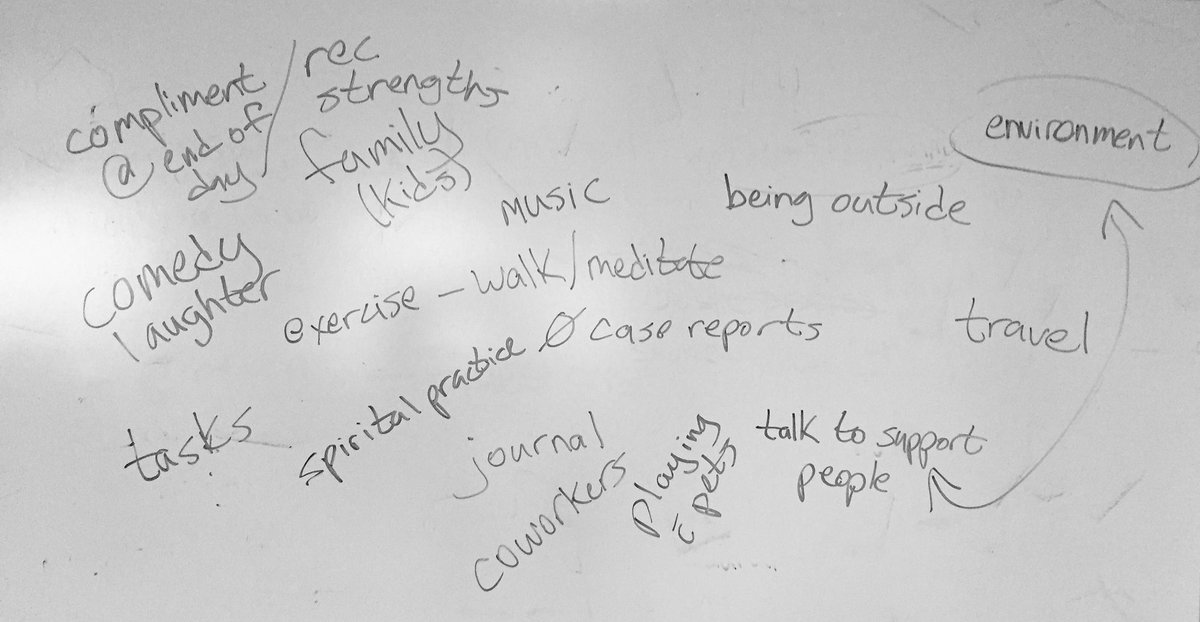 compliment / rec
@ end of strengths
day
family
(kids)
music
being outside
environment
comedy
laughter
exercise - walk/meditate
Ø case reports
travel
tasks
spirital practice
journal
coworkers
playing
c̄ pets
talk to support
people